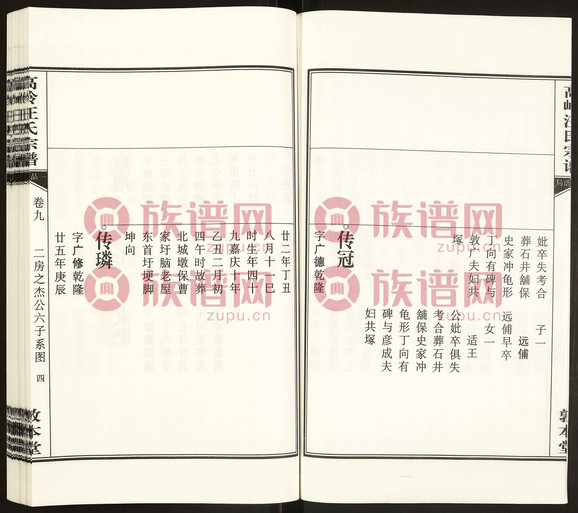 妣卒失考合
葬石井舖保
史家冲龟形
丁向有碑与
敦广夫妇共
塚
子一
远俌
远俌早卒
女一
适王
公妣卒俱失
考合葬石井
舖保史家冲
龟形丁向有
碑与彦成夫
妇共塚
传冠
字广德乾隆
廿二年丁丑
八月十一巳
时生年四十
九嘉庆十年
乙丑二月初
四午时故葬
北城墩保曹
家圩脑老屋
东首圩埂脚
坤向
传璘
字广修乾隆
廿五年庚辰
高岭汪氏宗谱
卷九
二房之杰公六子系图
四
敦本堂
敦本堂
族谱网
zupu.cn
族谱网
zupu.cn
族谱网
zupu.cn
族谱网
zupu.cn